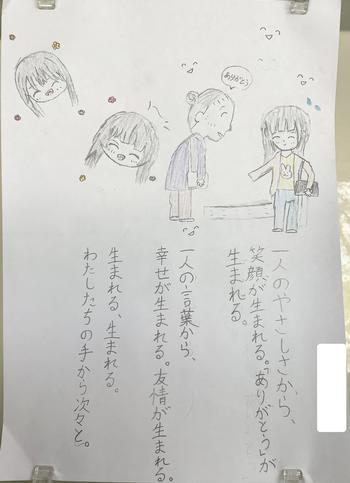 ありがとう
一人のやさしさから、
笑顔が生まれる。「ありがとう」が
生まれる。
一人の言葉から、
幸せが生まれる。友情が生まれる。
生まれる、生まれる。
わたしたちの手から次々と。